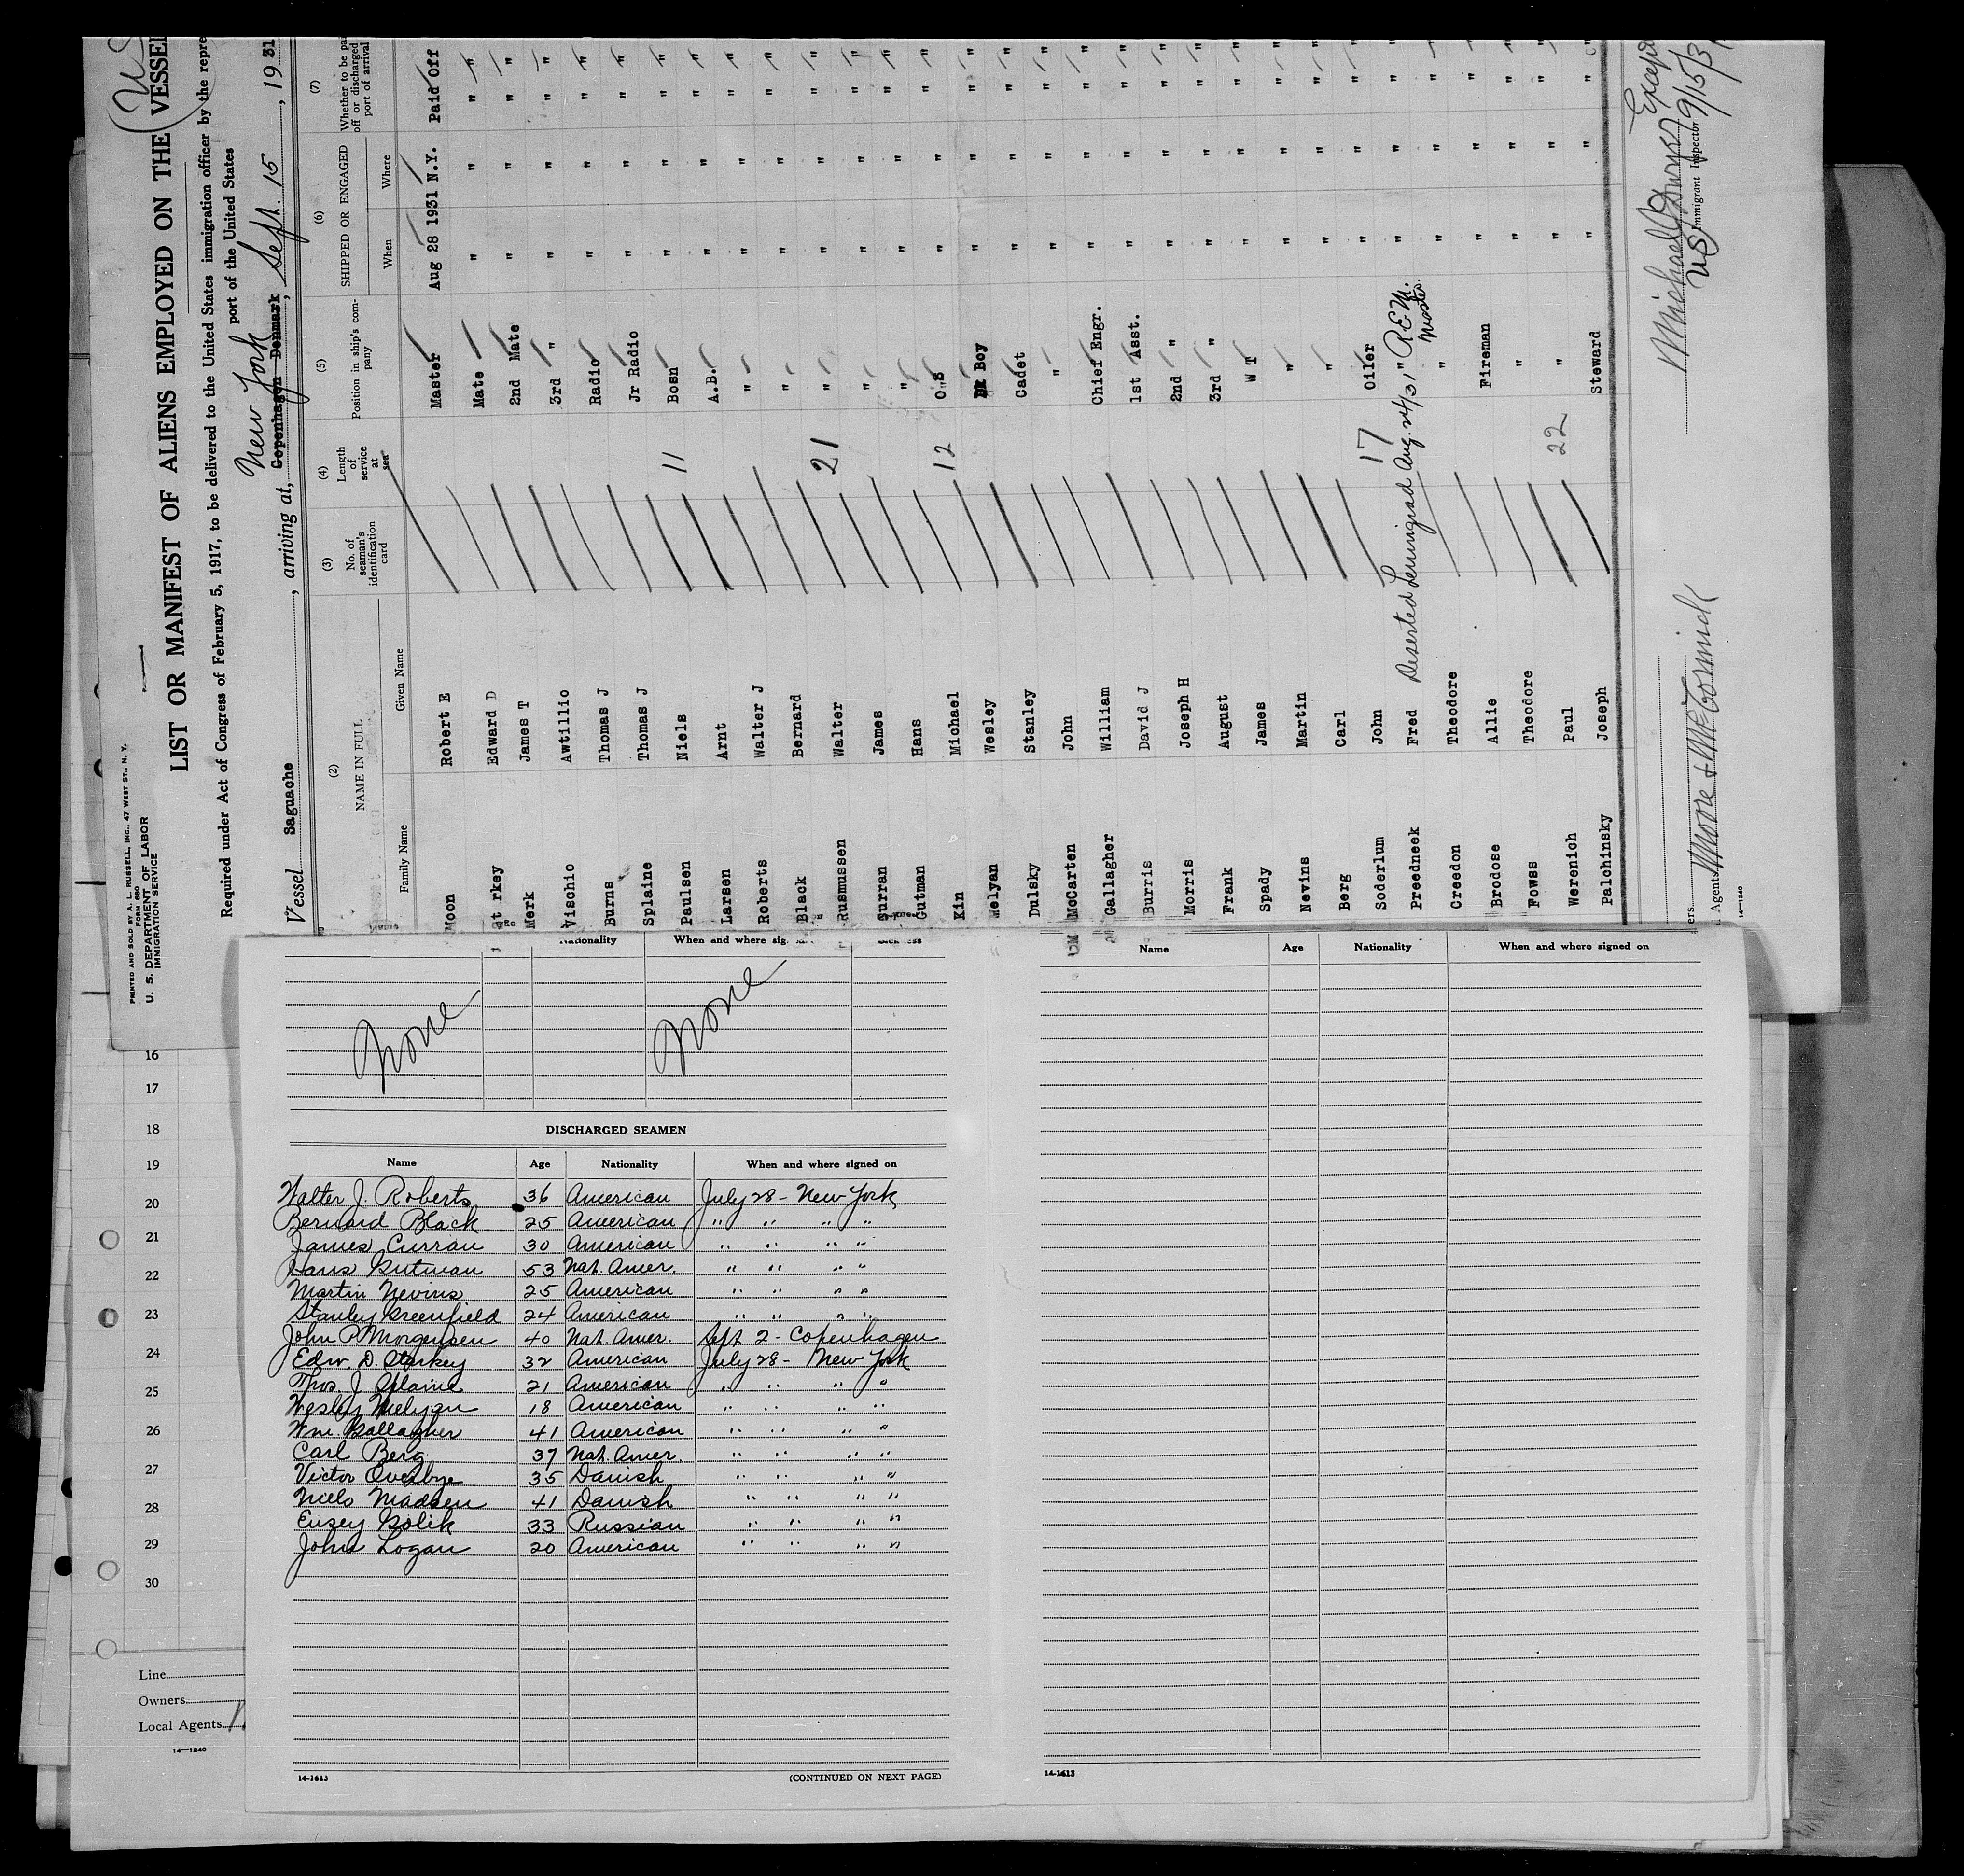 PRINTED AND SOLD BY A. L. RUSSELL, INC., 47 WEST ST., N. Y.
FORM 680
U. S. DEPARTMENT OF LABOR
IMMIGRATION SERVICE
LIST OR MANIFEST OF ALIENS EMPLOYED ON THE VESSEL
Required under Act of Congress of February 5, 1917, to be delivered to the United States immigration officer by the repre
port of the United States
New York
Vessel Saguache, arriving at, Copenhagen Denmark, Sept. 15, 1931
(2) (3) (4) (5) (6) (7)
NAME IN FULL No. of seaman's identification card Length of service at sea Position in ship's company SHIPPED OR ENGAGED Whether to be paid off or discharged port of arrival
Family Name Given Name When Where
Moon Robert E Master Aug 28 1931 N.Y. Paid Off
rkey Edward D Mate " " " "
Merk James T 2nd Mate " " " "
Vischio Awtillio 3rd " " " " "
Burns Thomas J Radio " " " "
Splaine Thomas J Jr Radio " " " "
Paulsen Niels 11 Bosn " " " "
Larsen Arnt A.B. " " " "
Roberts Walter J " " " " "
Black Bernard " " " " "
Rusmussen Walter 21 " " " " "
Curran James " " " " "
Gutman Hans " " " " "
Kin Michael 12 O"S " " " "
Welyan Wesley Dk Boy " " " "
Dulsky Stanley Cadet " " " "
McCarten John " " " " "
Gallagher William Chief Engr. " " " "
Burris David J 1st Asst. " " " "
Morris Joseph H 2nd " " " " "
Frank August 3rd " " " " "
Spady James W T " " " "
Nevins Martin " " " " "
Berg Carl " " " " "
Soderlum John 17 Oiler " " " "
Preedneek Fred Deserted Leningrad Aug. 24/31 " R.E.M. Master. " " "
Creedon Theodore " " " " "
Brodose Allie Fireman " " " "
Fowss Theodore " " " " "
Werenich Paul 22 " " " " "
Palchinsky Joseph Steward " " " "
Agents Moore & McCormick
14—1240
Immigrant Inspector
9/15/31
Nationality When and where sig Sickness
None None
DISCHARGED SEAMEN
Name Age Nationality When and where signed on
Walter J. Roberts 36 American July 28 - New York
Bernard Black 25 American " " " "
James Curran 30 American " " " "
Hans Gutman 53 Nat. Amer. " " " "
Martin Nevins 25 American " " " "
Stanley Greenfield 24 American " " " "
John P Morgensen 40 Nat. Amer. Sept 2 - Copenhagen
Edw. D. Starkey 32 American July 28 - New York
Thos. J. Splaine 21 American " " " "
Wesley Welyan 18 American " " " "
Wm. Gallagher 41 American " " " "
Carl Berg 37 Nat. Amer. " " " "
Victor Overbye 35 Danish " " " "
Niels Madsen 41 Danish " " " "
Eusey Golik 33 Russian " " " "
John Logan 20 American " " " "
14-1613 (CONTINUED ON NEXT PAGE)
Name Age Nationality When and where signed on
14-1613
16
17
18
19
20
21
22
23
24
25
26
27
28
29
30
Line
Owners
Local Agents
14—1240